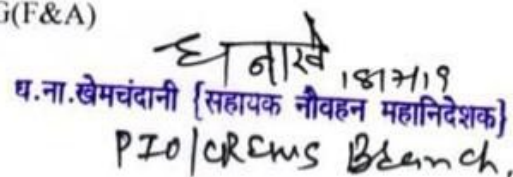 G(F&A)
ध.ना.खे
ध.ना.खेमचंदानी {सहायक नौवहन महानिदेशक}
PIO/CREWS Branch.